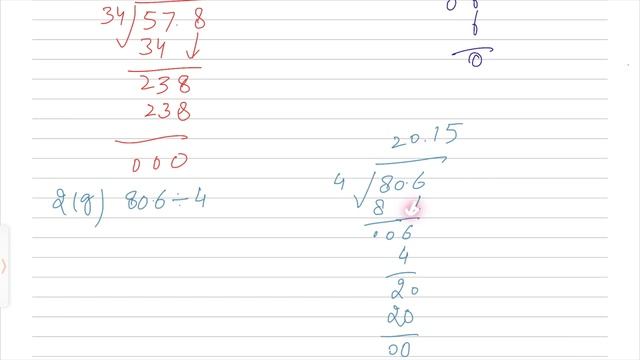 34 57.8
34
238
238
000
0
2(g) 80.6 ÷ 4
20.15
4 80.6
8
006
4
20
20
00